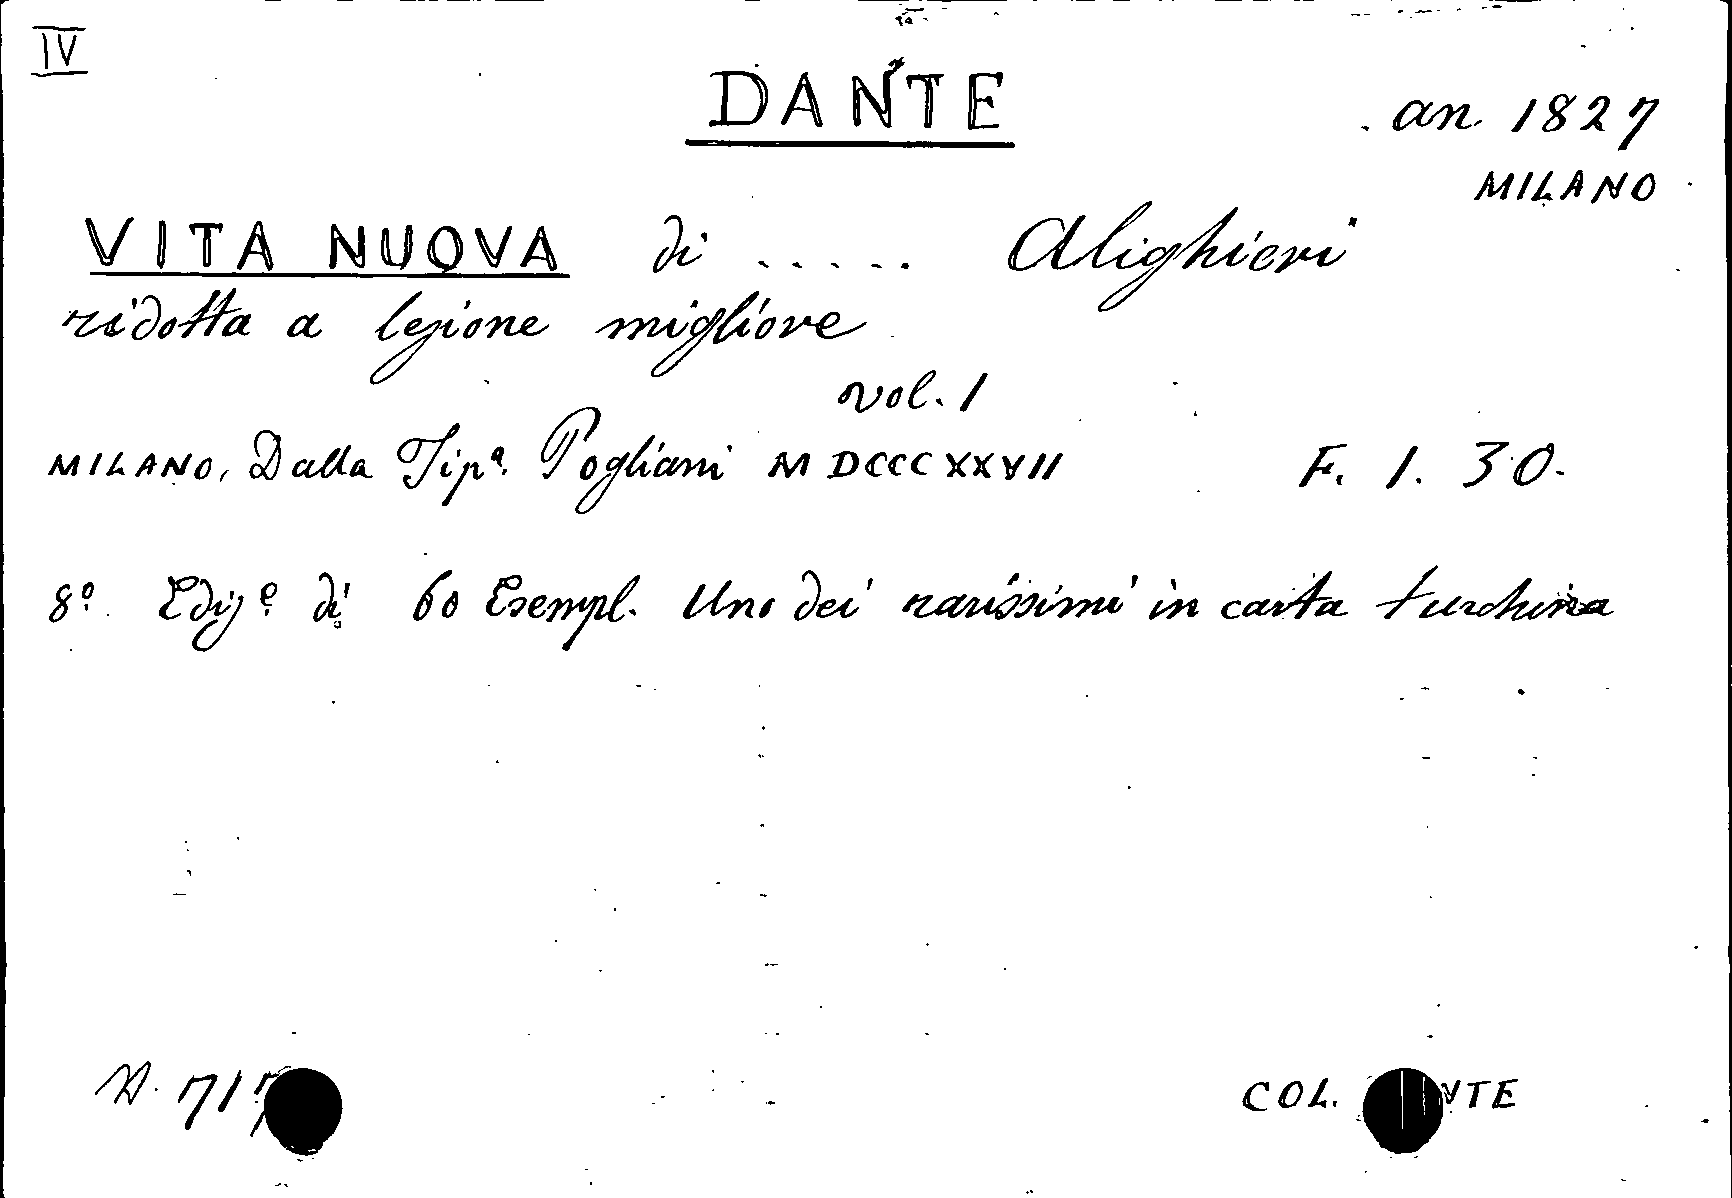 IV
DANTE
an. 1827
MILANO
VITA NUOVA di ..... Alighieri
ridotta a lezione migliore
vol. 1
MILANO, Dalla Tipª. Pogliani MDCCCXXVII F. 1. 30.
8º. Edizᵉ di 60 Esempl. Uno dei rarissimi in carta turchina
N. 717
COL.